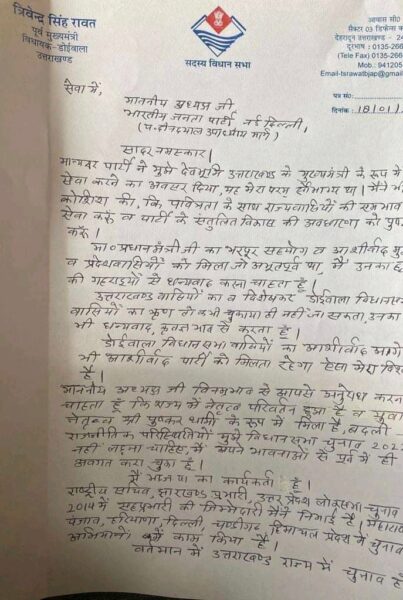 त्रिवेन्द्र सिंह रावत
पूर्व मुख्यमंत्री
विधायक- डोईवाला
उत्तराखण्ड
सदस्य विधान सभा
आवास सी०
सैक्टर 03 डिफेन्स क
देहरादून उत्तराखण्ड - 24
दूरभाष : 0135-266
(Tele Fax) 0135-266
Mob.: 941205
Email-tsrawatbjap@gmail
पत्र सं०:
दिनांक : 18/01/
सेवा में,
माननीय अध्यक्ष जी
भारतीय जनता पार्टी नई दिल्ली,
(प. दीनदयाल उपाध्याय मार्ग)
सादर नमस्कार।
मान्यवर पार्टी ने मुझे देवभूमि उत्तराखण्ड के मुख्यमंत्री के रूप में
सेवा करने का अवसर दिया, यह मेरा परम सौभाग्य था। मैंने भी
कोशिश की, कि, पवित्रता के साथ राज्यवासियों की समभाव
सेवा करूँ व पार्टी के संतुलित विकास की अवधारणा को पुष्ट
करूँ।
मा० प्रधानमंत्री जी का भरपूर सहयोग व आशीर्वाद मु
व प्रदेशवासियों को मिला जो अभूतपूर्व था, मैं उनका हृ
की गहराइयों से धन्यवाद करना चाहता हूँ।
उत्तराखण्ड वासियों का व विशेषकर डोईवाला विधानसभ
वासियों का ऋण तो कभी चुकाया ही नहीं जा सकता, उनका
भी धन्यवाद, कृतज्ञ भाव से करता हूँ।
डोईवाला विधानसभा वासियों का आशीर्वाद आगे
भी आशीर्वाद पार्टी को मिलता रहेगा ऐसा मेरा विश्व
है।
माननीय अध्यक्ष जी विनम्रभाव से आपसे अनुरोध करना
चाहता हूँ कि राज्य में नेतृत्व परिवर्तन हुआ है व युवा
नेतृत्व श्री पुष्कर धामी के रूप में मिला है, बदली
राजनीतिक परिस्थितियों मुझे विधानसभा चुनाव 202
नहीं लड़ना चाहिए, मैं अपने भावनाओं से पूर्व में ही
अवगत करा चुका हूँ।
मैं भाजपा का कार्यकर्ता हूँ।
राष्ट्रीय सचिव, झारखण्ड प्रभारी, उत्तर प्रदेश लोकसभा-चुनाव
2014 में सहप्रभारी की जिम्मेदारी मैंने निभाई है। महारा
पंजाब, हरियाणा, दिल्ली, चण्डीगढ़, हिमाचल प्रदेश में चुनाव
अभियानों में काम किया है।
वर्तमान में उत्तराखण्ड राज्य में चुनाव हो